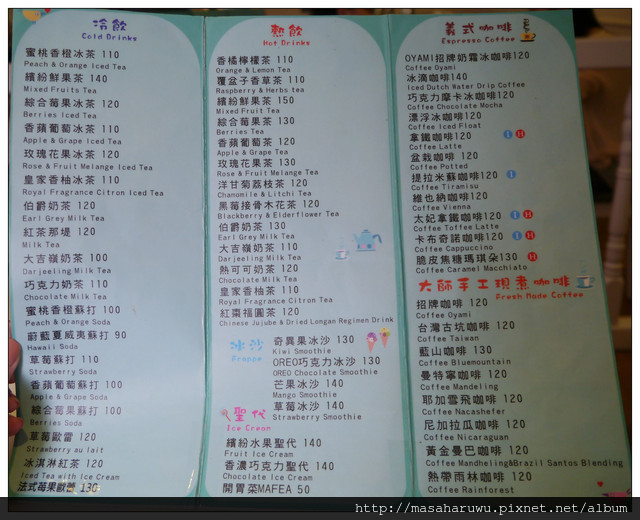 冷飲
Cold Drinks
蜜桃香橙冰茶 110
Peach & Orange Iced Tea
繽紛鮮果茶 140
Mixed Fruits Tea
綜合莓果冰茶 120
Berries Iced Tea
香蘋葡萄冰茶 110
Apple & Grape Iced Tea
玫瑰花果冰茶 120
Rose & Fruit Melange Iced Tea
皇家香柚冰茶 110
Royal Fragrance Citron Iced Tea
伯爵奶茶 120
Earl Grey Milk Tea
紅茶那堤 120
Milk Tea
大吉嶺奶茶 100
Darjeeling Milk Tea
巧克力奶茶 110
Chocolate Milk Tea
蜜桃香橙蘇打 100
Peach & Orange Soda
蔚藍夏威夷蘇打 90
Hawaii Soda
草莓蘇打 110
Strawberry Soda
香蘋葡萄蘇打 100
Apple & Grape Soda
綜合莓果蘇打 100
Berries Soda
草莓歐蕾 120
Strawberry au lait
冰淇淋紅茶 120
Iced Tea with Ice Cream
法式莓果歐蕾 130
熱飲
Hot Drinks
香橘檸檬茶 110
Orange & Lemon Tea
覆盆子香草茶 110
Raspberry & Herbs tea
繽紛鮮果茶 150
Mixed Fruit Tea
綜合莓果茶 130
Berries Tea
香蘋葡萄茶 120
Apple & Grape Tea
玫瑰花果茶 130
Rose & Fruit Melange Tea
洋甘菊荔枝茶 120
Chamomile & Litchi Tea
黑莓接骨木花茶 120
Blackberry & Elderflower Tea
伯爵奶茶 130
Earl Grey Milk Tea
大吉嶺奶茶 110
Darjeeling Milk Tea
熱可可奶茶 120
Chocolate Milk Tea
皇家香柚茶 110
Royal Fragrance Citron Tea
紅棗福圓茶 120
Chinese Jujube & Dried Longan Regimen Drink
冰沙
Frappe
奇異果冰沙 130
Kiwi Smoothie
OREO巧克力冰沙 130
OREO Chocolate Smoothie
芒果冰沙 140
Mango Smoothie
草莓冰沙 140
Strawberry Smoothie
聖代
Ice Cream
繽紛水果聖代 140
Fruit Ice Cream
香濃巧克力聖代 140
Chocolate Ice Cream
開胃菜MAFEA 50
義式咖啡
Espresso Coffee
OYAMI招牌奶霜冰咖啡120
Coffee Oyami
冰滴咖啡140
Iced Dutch Water Drip Coffee
巧克力摩卡冰咖啡120
Coffee Chocolate Mocha
漂浮冰咖啡120
Coffee Iced Float
拿鐵咖啡120 I H
Coffee Latte
盆栽咖啡 120
Coffee Potted
提拉米蘇咖啡120 I
Coffee Tiramisu
維也納咖啡120
Coffee Vienna
太妃拿鐵咖啡120 I H
Coffee Toffee Latte
卡布奇諾咖啡120 I H
Coffee Cappuccino
脆皮焦糖瑪琪朵130 H
Coffee Caramel Macchiato
大師手工現煮咖啡
Fresh Made Coffee
招牌咖啡 120
Coffee Oyami
台灣古坑咖啡 120
Coffee Taiwan
藍山咖啡 130
Coffee Bluemountain
曼特寧咖啡 120
Coffee Mandeling
耶加雪飛咖啡 120
Coffee Nacashefer
尼加拉瓜咖啡 120
Coffee Nicaraguan
黃金曼巴咖啡 120
Coffee Mandheling&Brazil Santos Blending
熱帶雨林咖啡 120
Coffee Rainforest
http://masaharuwu.pixnet.net/album